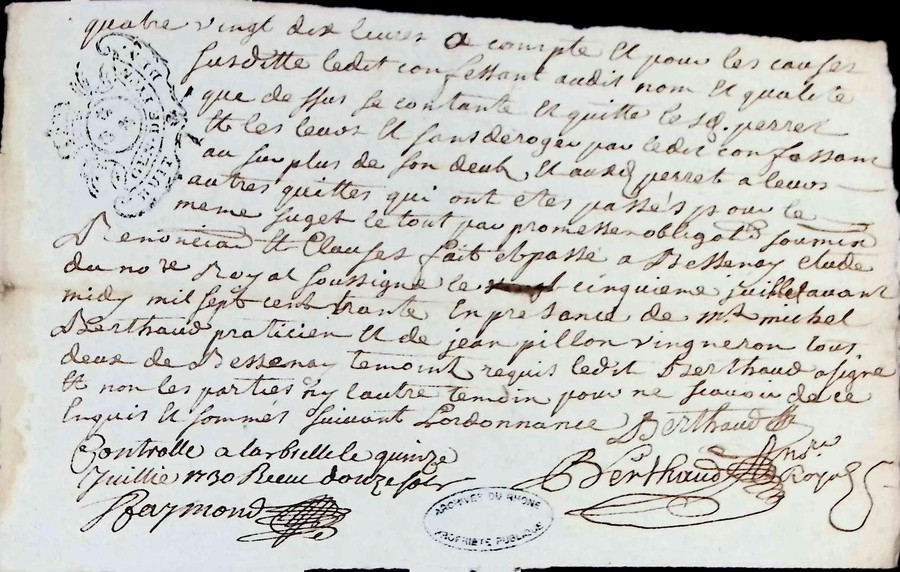 quatre vingt dix livres a compte et pour les causes
susditte ledit confessant audit nom et qualite
que dessus se contante et quitte le sr. perret
et les leurs et sans deroger par ledit confessant
au surplus de son deub, et aud perret a leurs
autres quittes qui ont etes passés pour le
meme suget le tout par promesse obligatn soumin
Renonciaon et Clauses fait et passé a Bessenay etude
du nore Royal soussigne le cinquieme juillet avant
midy mil sept cent trante En presance de mr michel
Berthaud praticien et de jean pillon vingneron tous
deux de Bessenay temoint requis ledit Berthaud a signe
et non les parties ny l'autre temoin pour ne scavoir de ce
Enquis et sommes suivant Lordonnance Berthaud
Controlle a larbrelle le quinze
Juillie 1730 Receu douze sols
Raymond
Berthaud nore Royal
ARCHIVES DU RHONE
PROPRIÉTÉ PUBLIQUE